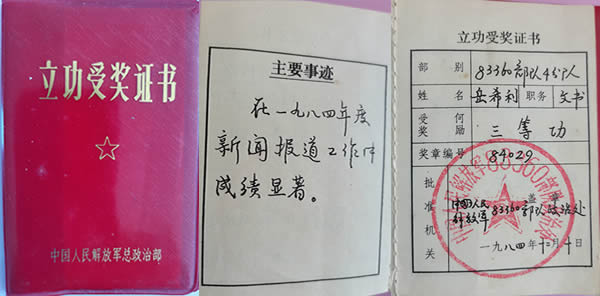 立功受奖证书
中国人民解放军总政治部
主要事迹
在一九八四年度
新闻报道工作中
成绩显著。
立功受奖证书
部别 83360部队4分队
姓名 岳希利 职务 文书
受何奖励 三等功
奖章编号 84029
批准机关 中国人民解放军83360部队政治处
盖章
一九八四年十二月十日